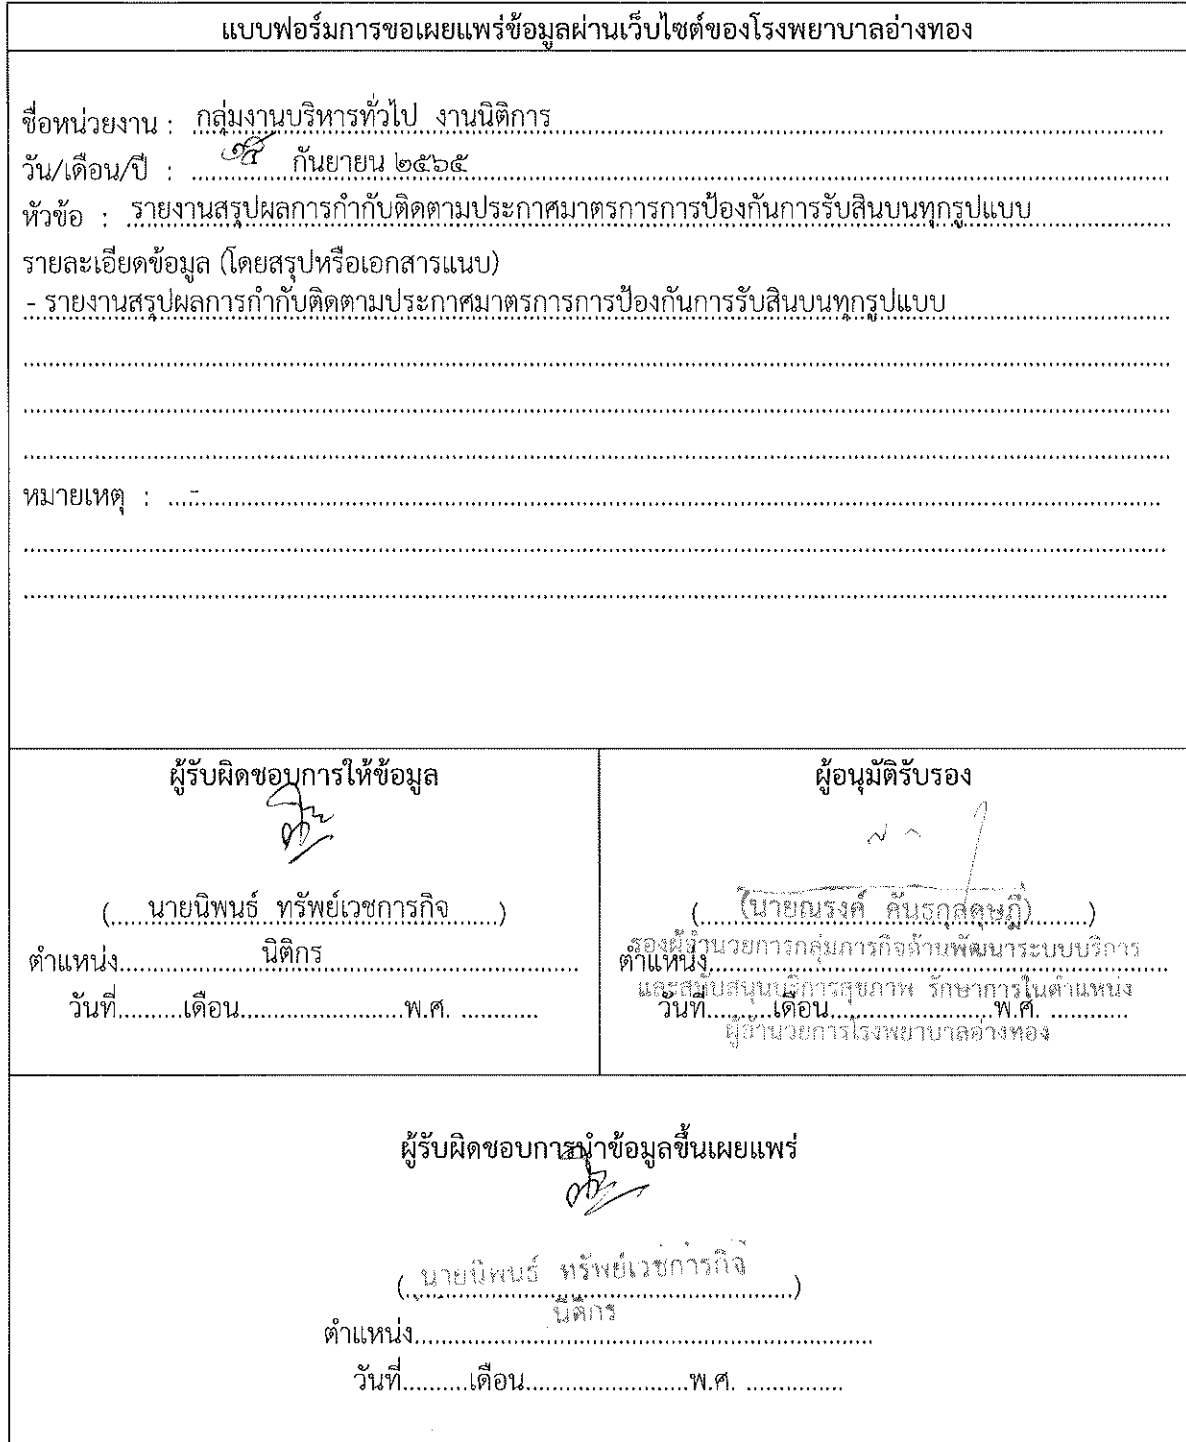 แบบฟอร์มการขอเผยแพร่ข้อมูลผ่านเว็บไซต์ของโรงพยาบาลอ่างทอง
ชื่อหน่วยงาน : กลุ่มงานบริหารทั่วไป งานนิติการ
วัน/เดือน/ปี : กันยายน ๒๕๖๕
หัวข้อ : รายงานสรุปผลการกำกับติดตามประกาศมาตรการการป้องกันการรับสินบนทุกรูปแบบ
รายละเอียดข้อมูล (โดยสรุปหรือเอกสารแนบ)
- รายงานสรุปผลการกำกับติดตามประกาศมาตรการการป้องกันการรับสินบนทุกรูปแบบ
หมายเหตุ : ...-...
ผู้รับผิดชอบการให้ข้อมูล
(.....นายนิพนธ์ ทรัพย์เวชการกิจ.....)
ตำแหน่ง.....นิติกร.....
วันที่..........เดือน.........................พ.ศ. ............
ผู้อนุมัติรับรอง
(นายณรงค์)
รองผู้อำนวยการกลุ่มภารกิจด้านพัฒนาระบบบริการ
ตำแหน่ง
และสนับสนุนบริการสุขภาพ รักษาการในตำแหน่ง
วันที่..........เดือน.........................พ.ศ. ............
ผู้อำนวยการโรงพยาบาลอ่างทอง
ผู้รับผิดชอบการนำข้อมูลขึ้นเผยแพร่
(นายนิพนธ์ ทรัพย์เวชการกิจ)
นิติกร
ตำแหน่ง......................................................................
วันที่..........เดือน.........................พ.ศ. ...............